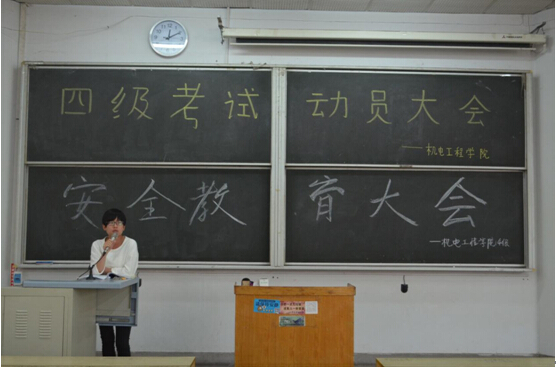 四级考试 动员大会
——机电工程学院
安全教育大会
——机电工程学院